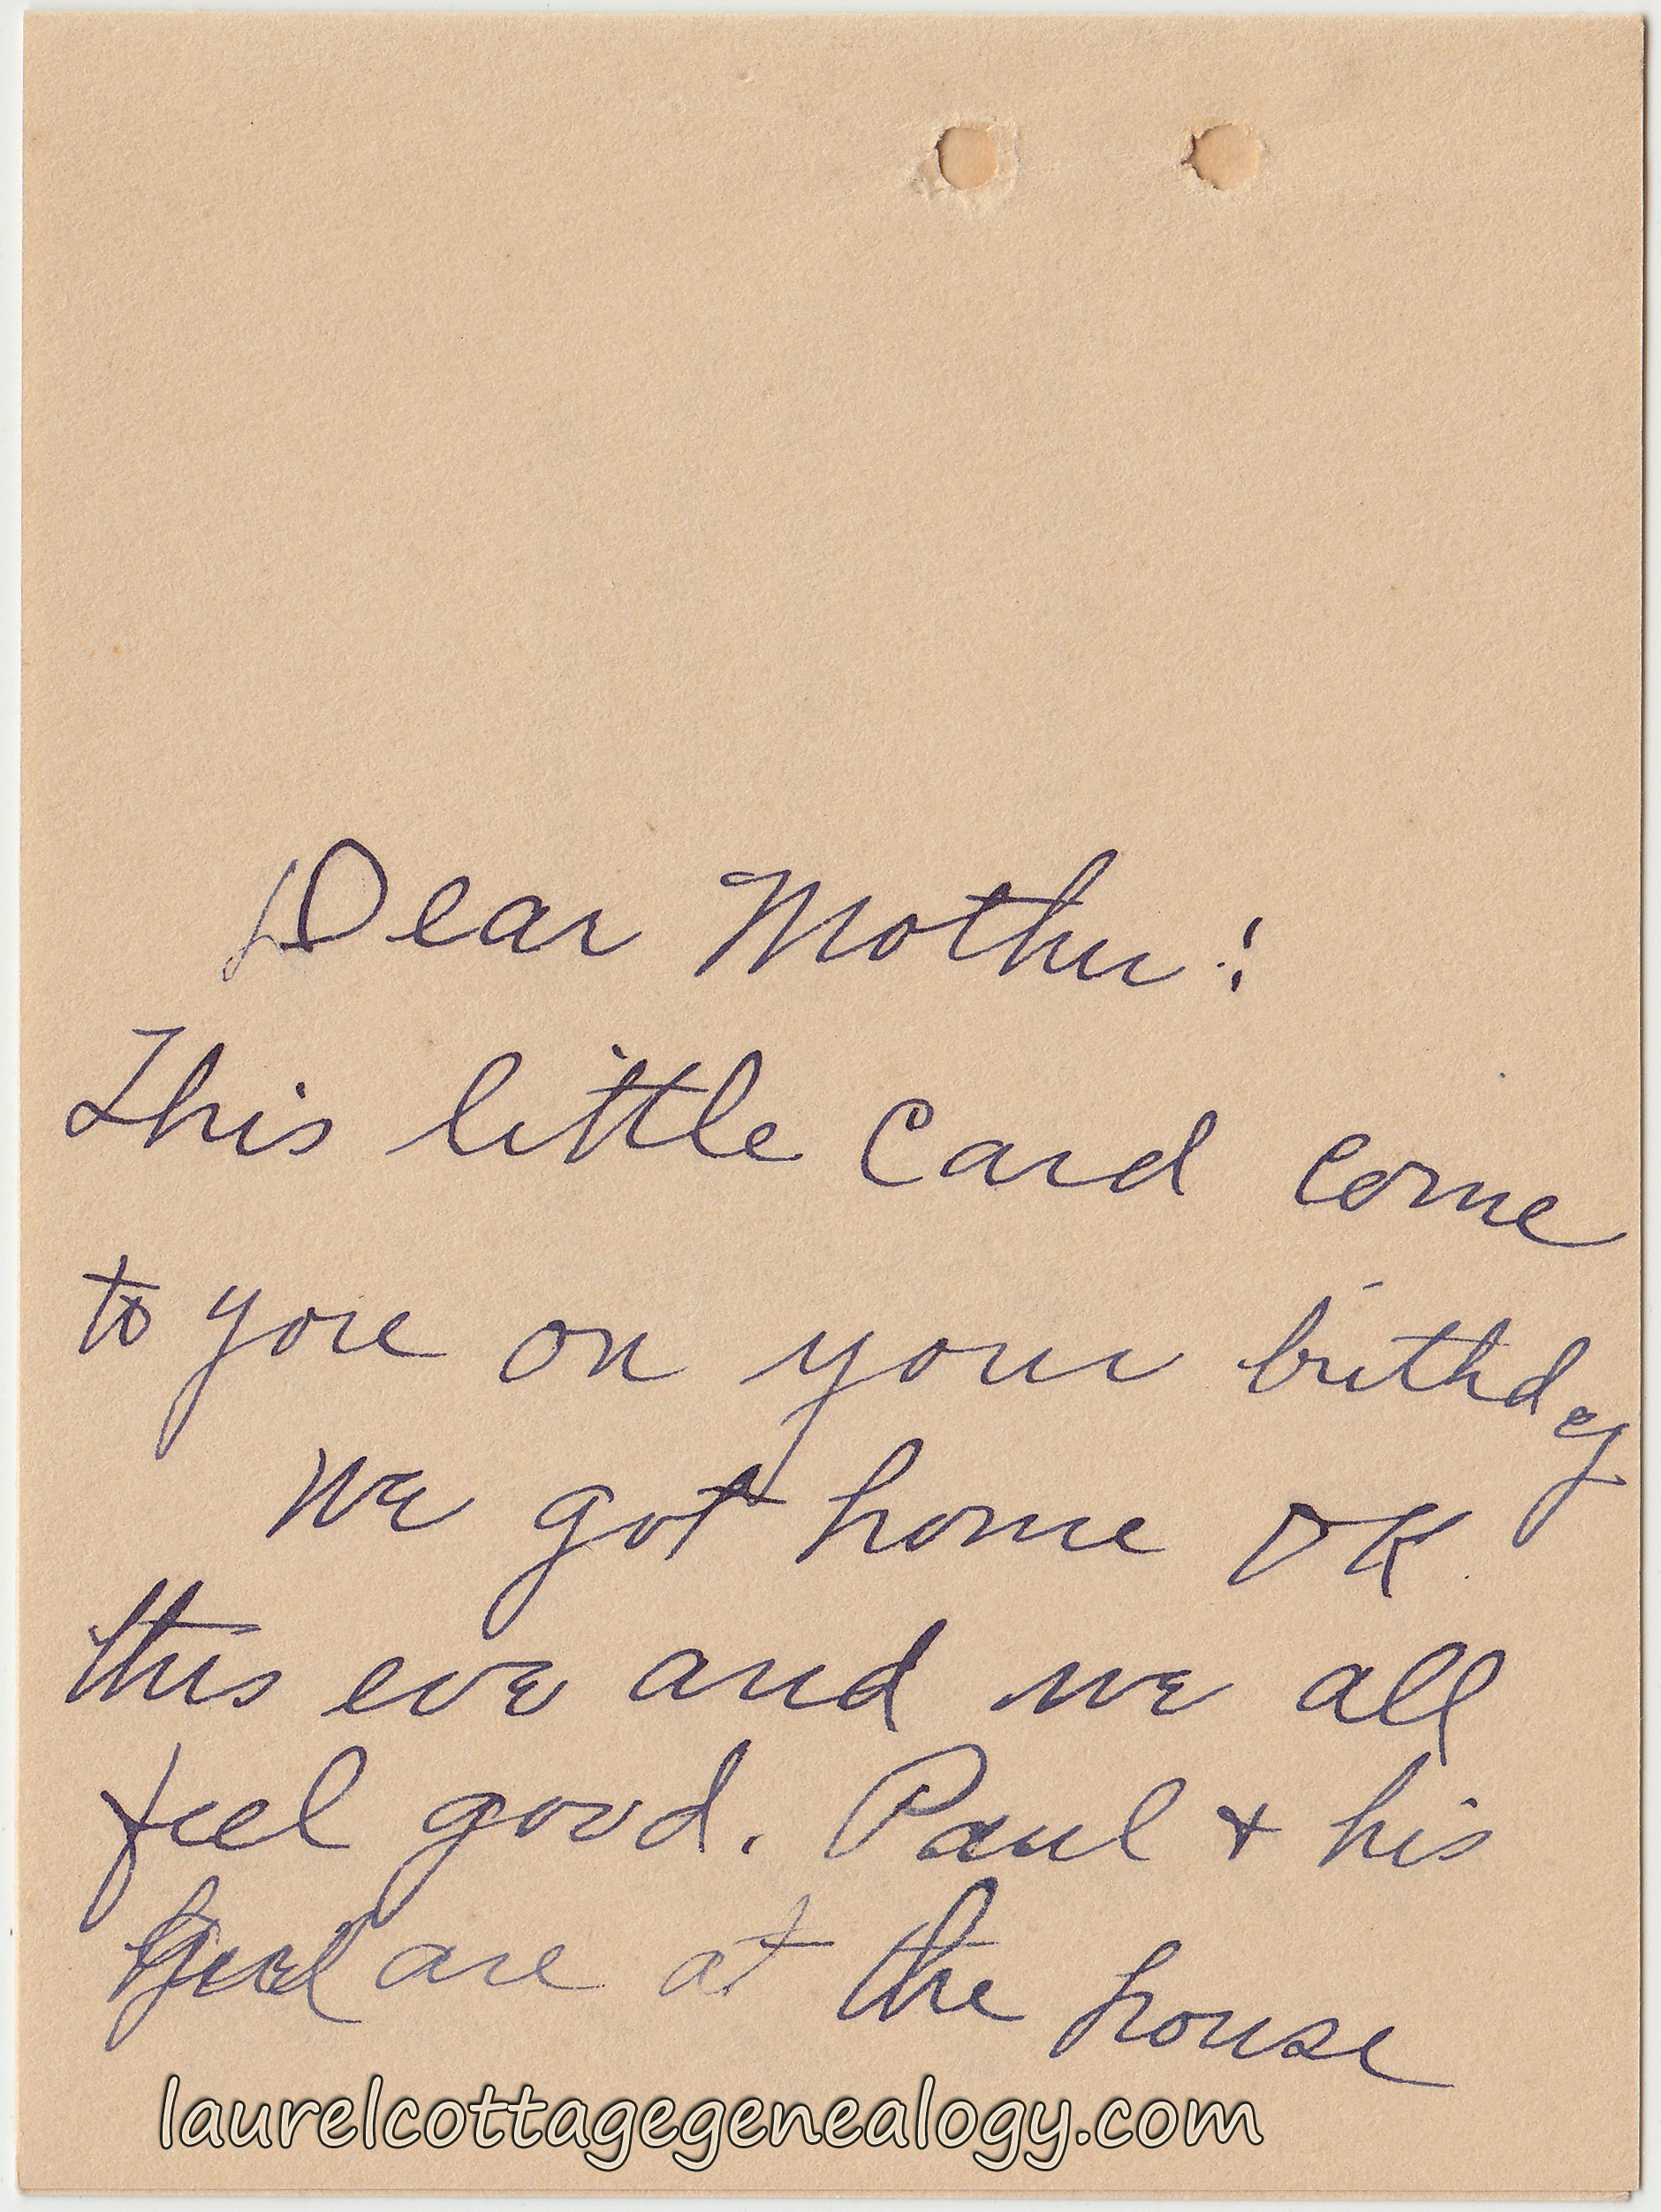 Dear Mother:
This little Card come
to you on your birthday
We got home OK.
this eve and we all
feel good. Paul + his
are at the house
laurelcottagegenealogy.com